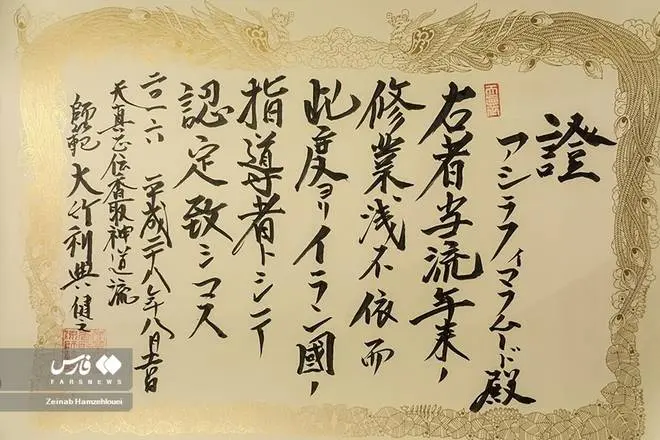 證
アシラフィマフムード殿
右者当流年来ノ
修業浅不依而
此度ヨリイラン國ノ
指導者トシテ
認定致シマス
二〇一六 平成二十八年八月吉日
天真正伝香取神道流
師範 大竹利典健之
فارس
FARSNEWS
Zeinab Hamzehlouei